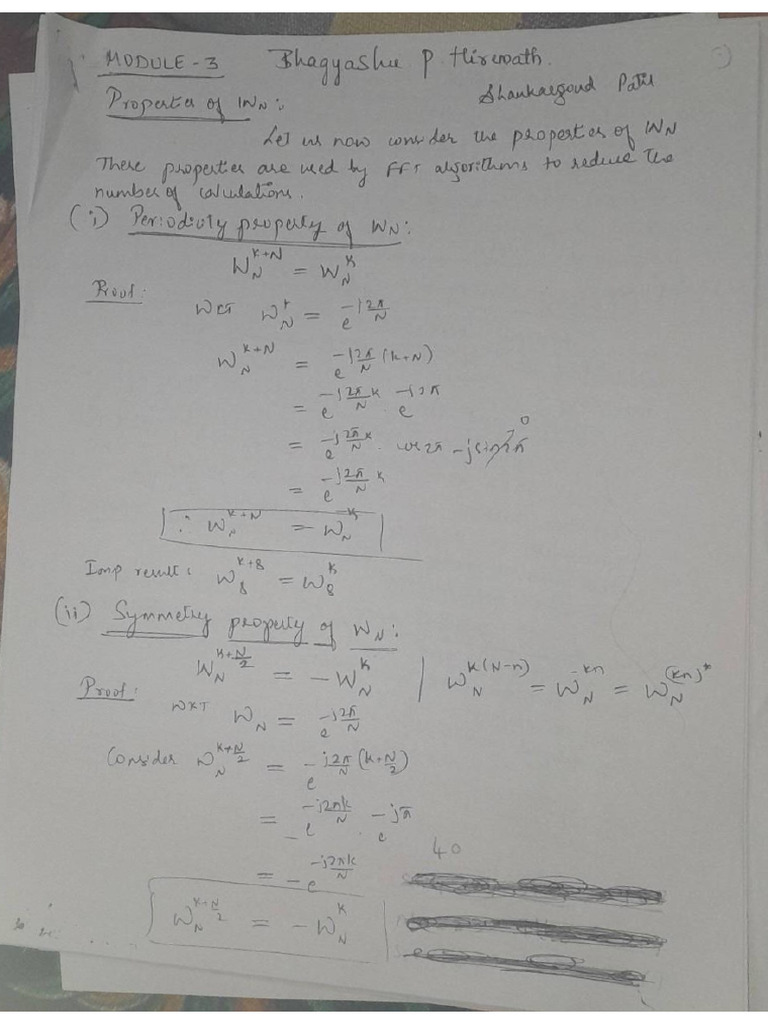 MODULE - 3 Bhagyashu P Hiremath.
Shankargoud Patil
Properties of WN :.
Let us now consider the properties of WN
These properties are used by FFT algorithms to reduce the
number of calculations.
(i) Periodicity property of WN :
W_N^{k+N} = W_N^k
Proof: WKT W_N^k = e^{-j2π/N}
W_N^{k+N} = e^{-j2π/N (k+N)}
= e^{-j2π/N k} . e^{-j2π}
= e^{-j2π/N k} . cos2π - jsin2π 0
= e^{-j2π/N k}
∴ W_N^{k+N} = W_N^k
Imp result : W_8^{k+8} = W_8^k
(ii) Symmetry property of WN :
W_N^{k+N/2} = - W_N^k | W_N^{k(N-n)} = W_N^{-kn} = W_N^{(kn)*}
Proof : WKT W_N = e^{-j2π/N}
Consider W_N^{k+N/2} = e^{-j2π/N (k+N/2)}
= - e^{-j2πk/N} . e^{-jπ}
= - e^{-j2πk/N}
40
W_N^{k+N/2} = - W_N^k